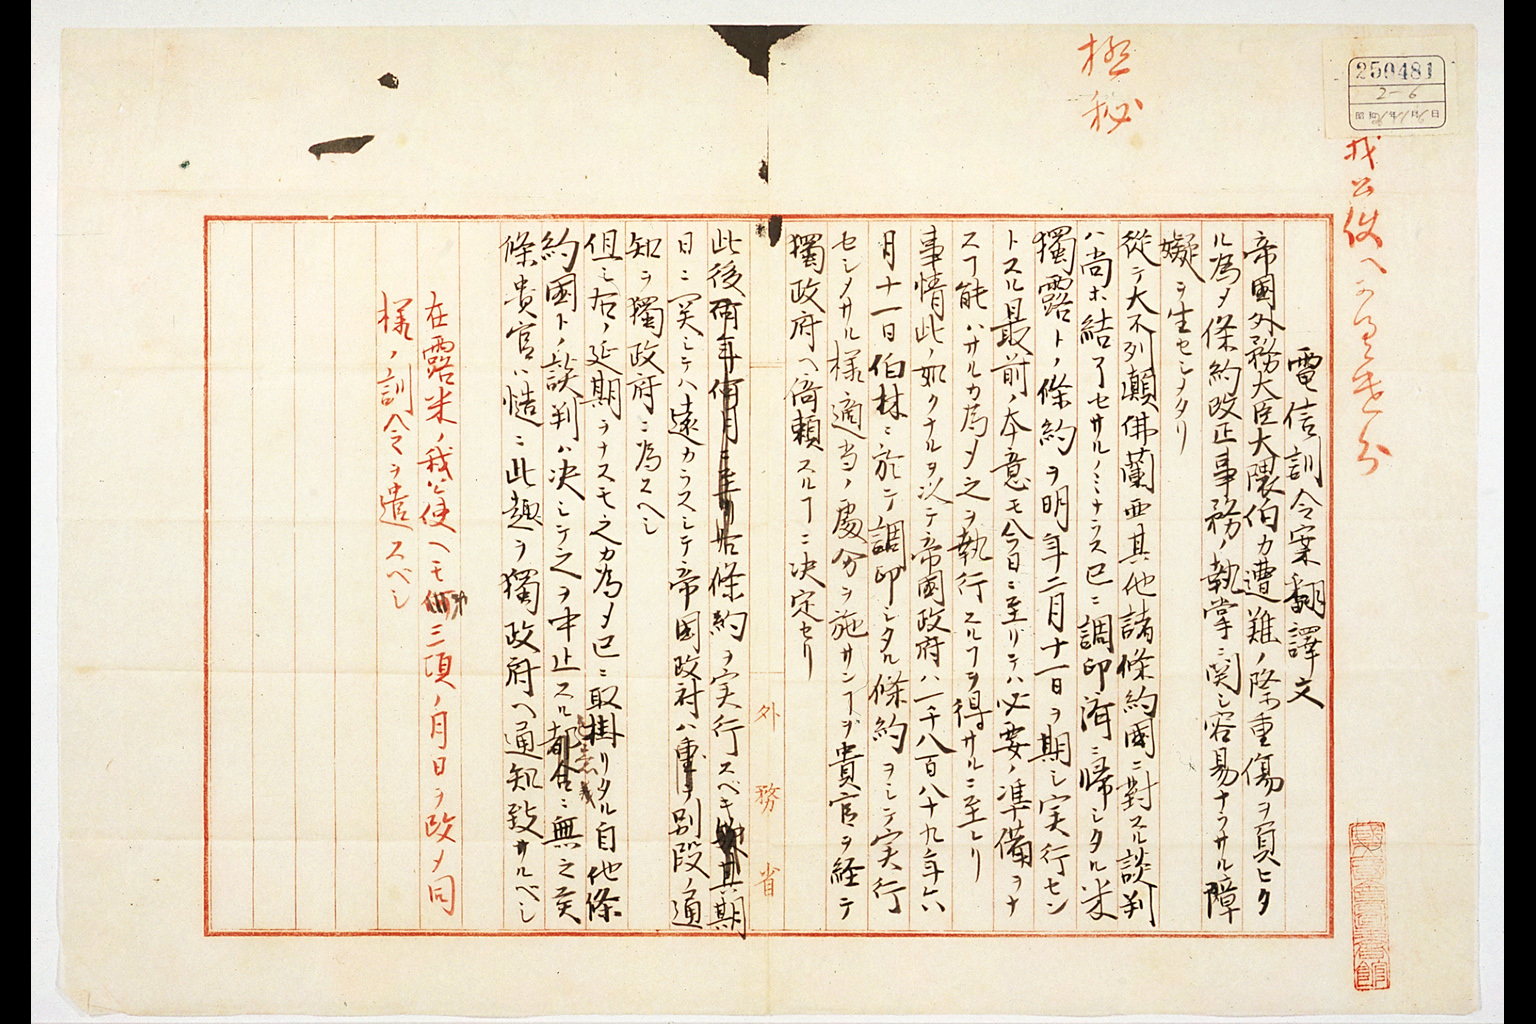 極秘
250481
2-6
我公使へ
電信訓令案翻譯文
帝國外務大臣大隈伯カ遭難ノ際重傷ヲ負ヒタ
ル為メ條約改正事務ノ執掌ニ関シ容易ナラサル障
礙ヲ生セシメタリ
從テ大不列顛佛蘭西其他諸條約國ニ對スル談判
ハ尚ホ結了セサルノミナラス已ニ調印済ニ歸シタル米
獨露トノ條約ヲ明年二月十一日ヲ期シ実行セン
トスル最前ノ本意モ今日ニ至リテハ必要ノ準備ヲナ
スヿ能ハサルカ為メ之ヲ執行スルヿヲ得サルニ至レリ
事情此ノ如クナルヲ以テ帝國政府ハ一千八百八十九年六
月十一日伯林ニ於テ調印シタル條約ヲシテ実行
セシメサル様適当ノ處分ヲ施サンヿヲ貴官ヲ経テ
獨政府ヘ倚頼スルヿニ決定セリ
此後何年何月ニ至リ右條約ヲ実行スベキ其期
日ニ関シテハ遠カラスシテ帝國政府ハ別段ノ通
知ヲ獨政府ニ為スヘシ
但シ右ノ延期ヲナスモ之カ為メ已ニ取掛リタル自他條
約國トノ談判ハ決シテ之ヲ中止スル無之矣
條貴官ハ慥ニ此趣ヲ獨政府ヘ通知致サルベシ
在露米ノ我公使ヘモ第三項ノ月日ヲ改メ同
様ノ訓令ヲ遣スベシ
外務省